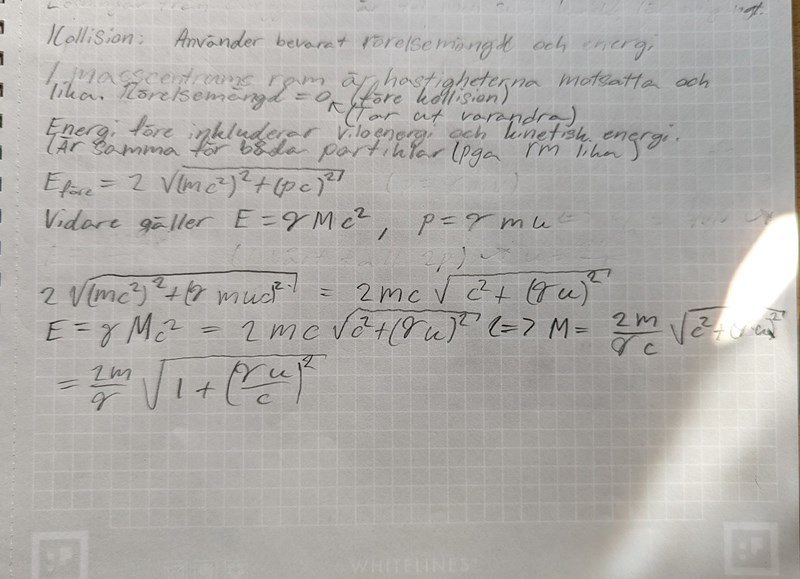 Kollision: Använder bevarat rörelsemängd och energi
I masscentrums ram är hastigheterna motsatta och
lika. Rörelsemängd = 0 (före kollision)
(tar ut varandra)
Energi före inkluderar viloenergi och kinetisk energi.
(Är samma för båda partiklar (pga rm lika)
E_före = 2 √((mc²)² + (pc)²)
Vidare gäller E = γMc², p = γmu
2 √((mc²)² + (γmuc)²) = 2mc √(c² + (γu)²)
E = γMc² = 2mc √(c² + (γu)²) <=> M = 2m/(γc) √(c² + (γu)²)
= 2m/γ √(1 + (γu/c)²)
WHITELINES